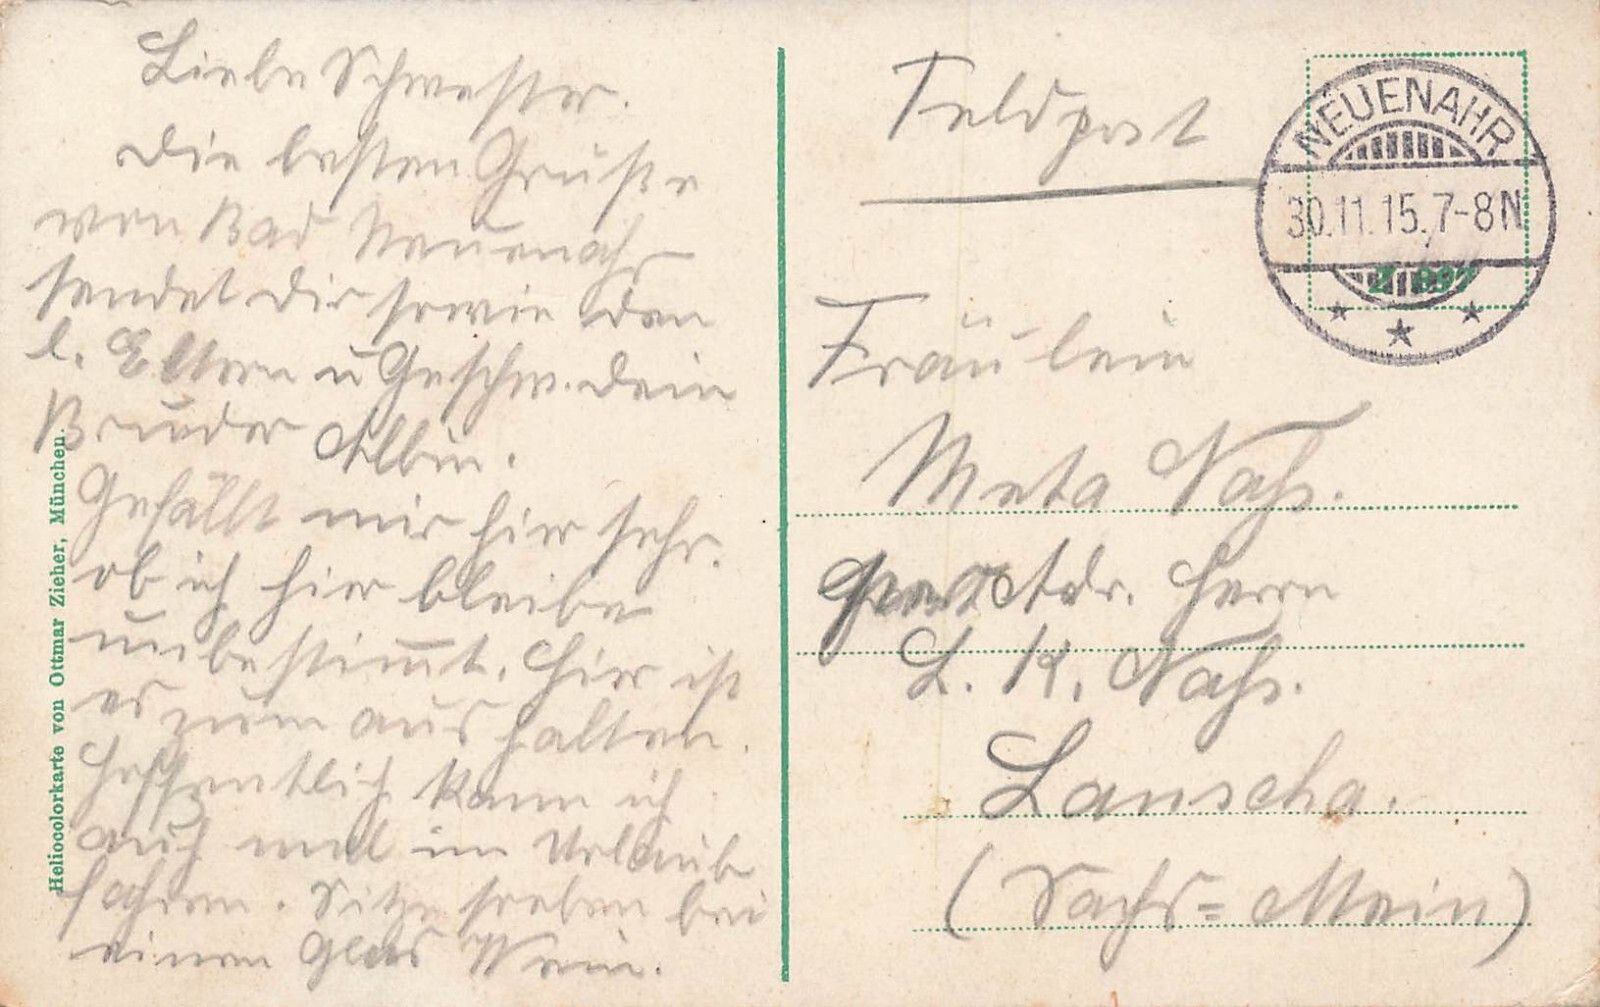 Liebe Schwester.
Die besten Grüße
von Bad Neuenahr
sendet Dir sowie den
l. Eltern u Geschw. Dein
Bruder Albin.
Gefällt mir hier sehr.
ob ich hier bleibe
unbestimmt. Hier ist
es zum aushalten.
Hoffentlich kann ich
auch mal im Urlaub
fahren. Sitze soeben bei
einem Glas Wein.
Heliocolorkarte von Ottmar Zieher, München.
Feldpost
NEUENAHR
30.11.15.7-8N
Fräulein
Meta
Adr. Herrn
L. K.
Lauscha.
(Sachs=Mein)